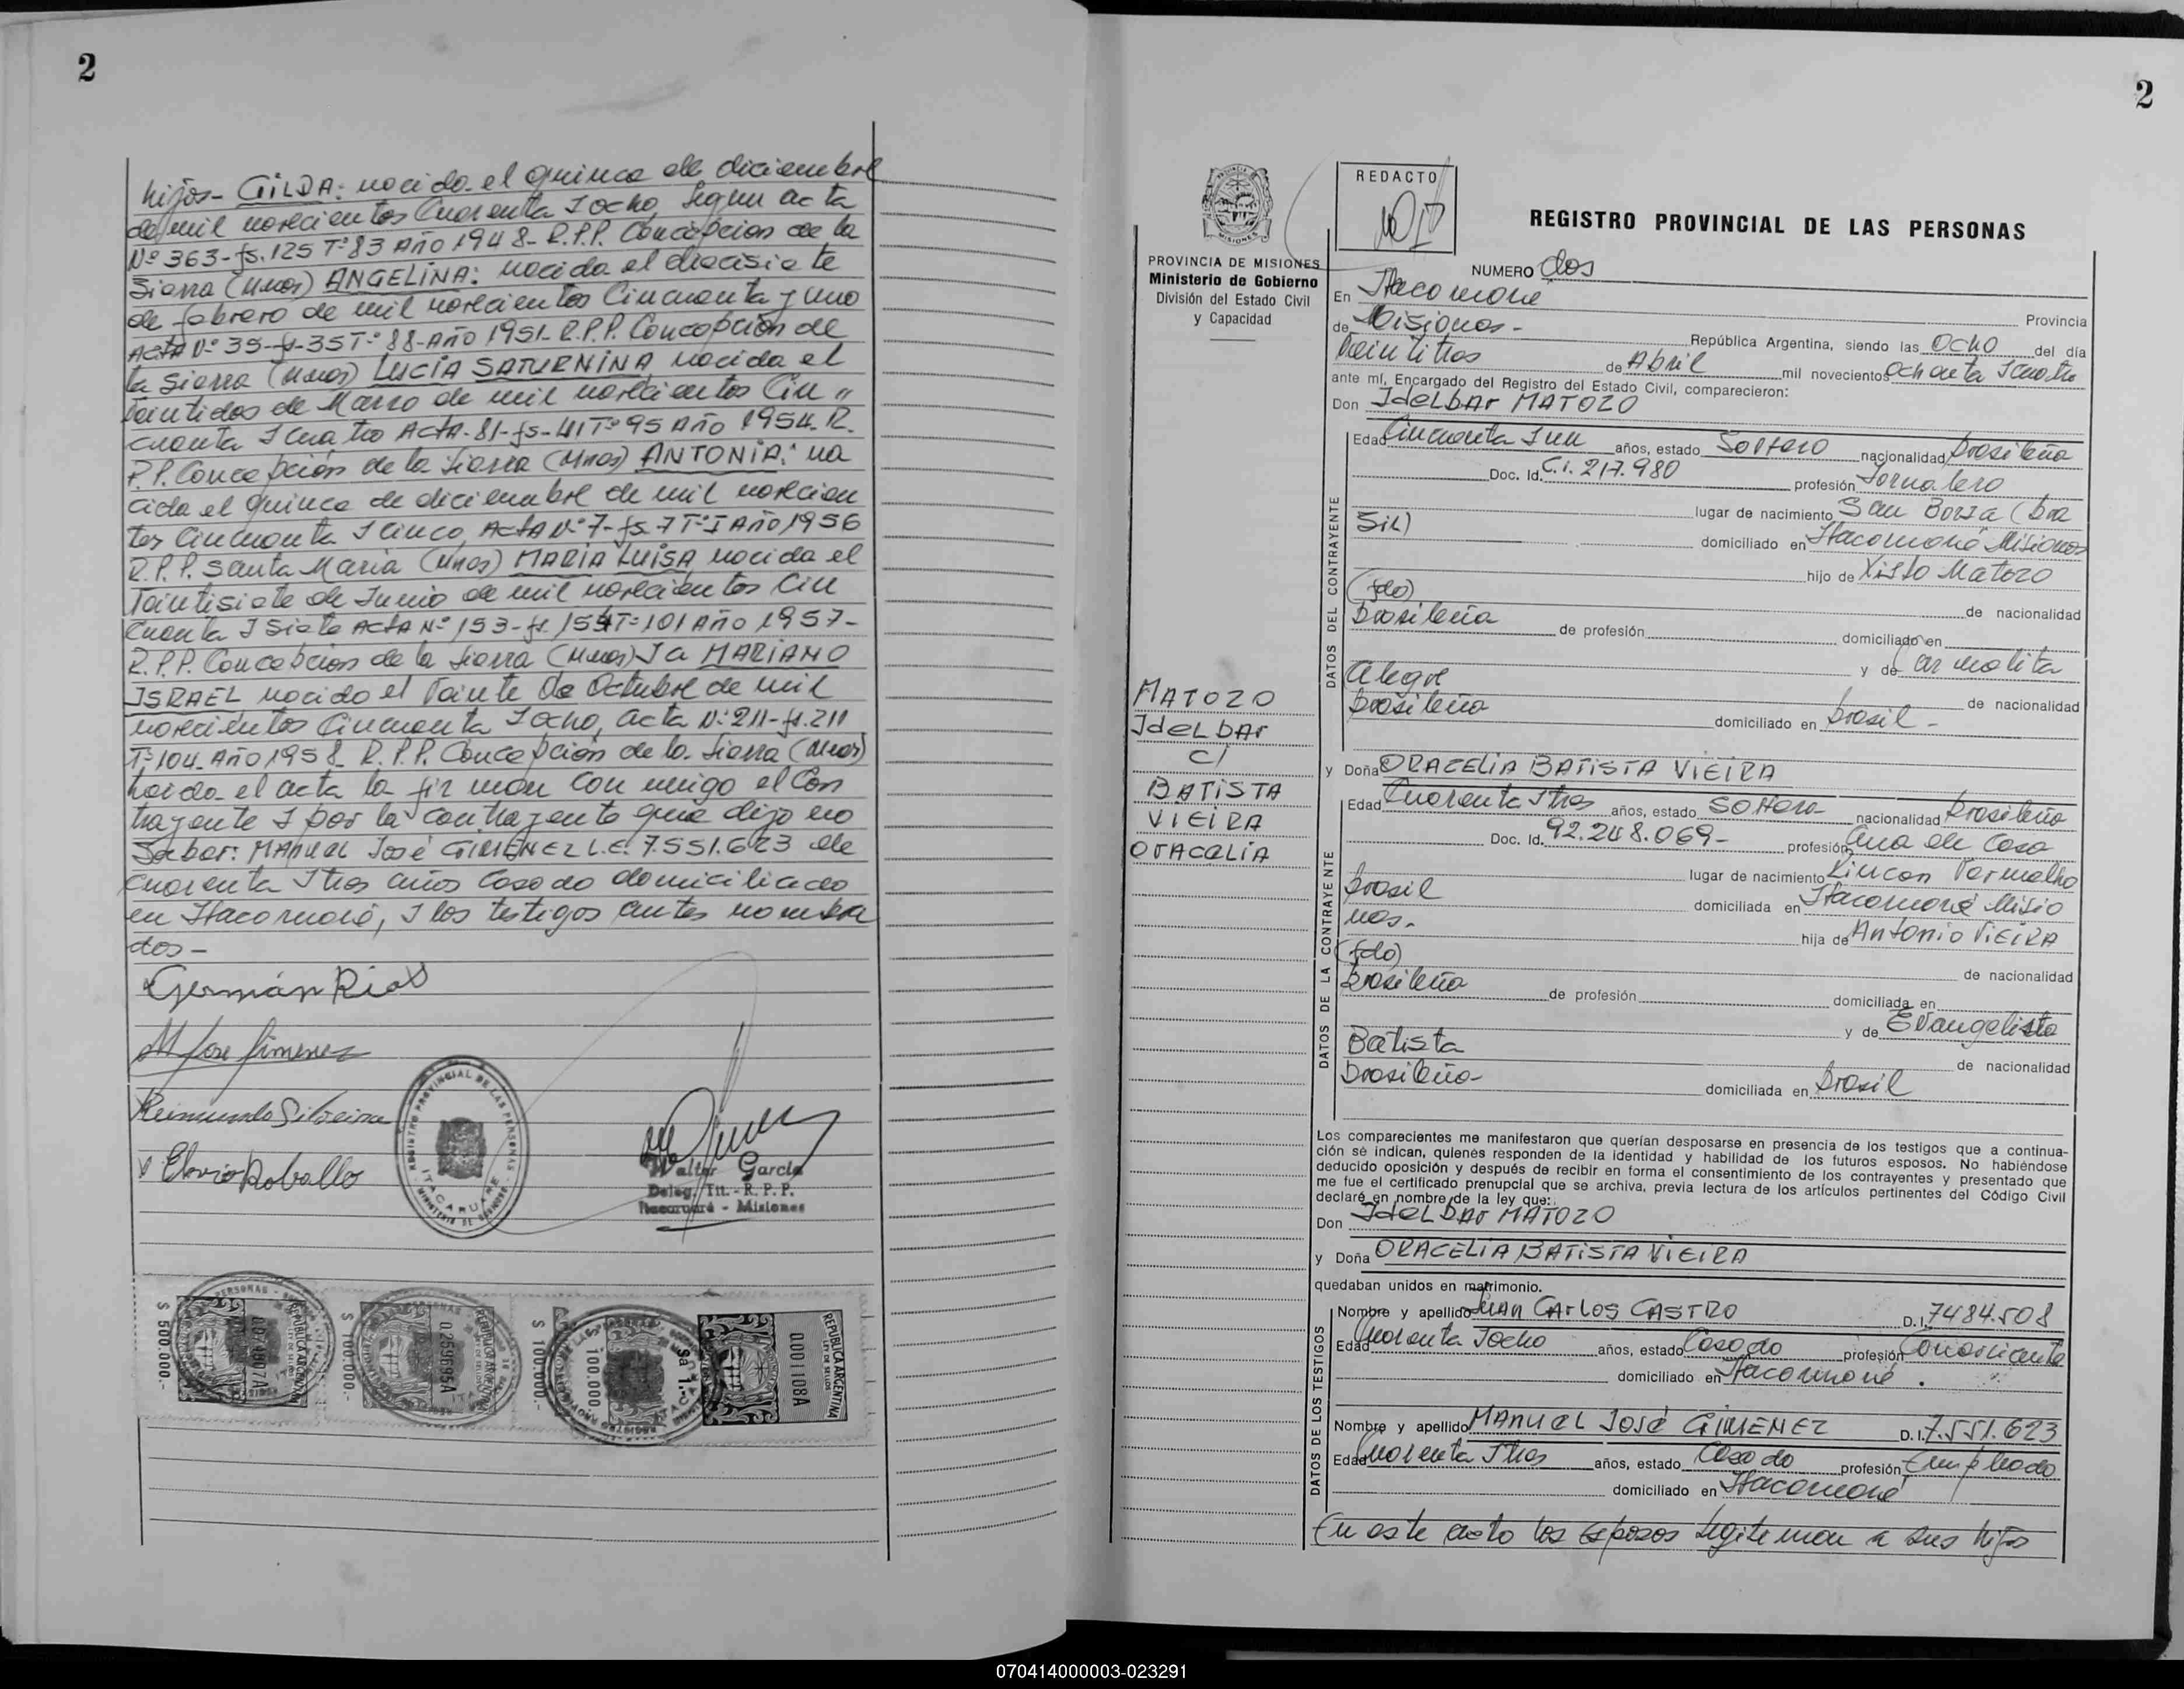 2
hijos- GILDA: nacida el quince de diciembre
de mil novecientos Cuarenta y ocho, Según acta
Nº 363-fs. 125 Tº 83 Año 1948- R.P.P. Concepcion de la
Sierra (Mnes) ANGELINA: nacida el diecisiete
de febrero de mil novecientos Cincuenta y uno
ACTA Nº 35-f-35 Tº 88-Año 1951- R.P.P. Concepción de
la Sierra (Mnes) LUCÍA SATURNINA, nacida el
Veintidos de Marzo de mil novecientos Cin "
cuenta y cuatro ACTA-81-fs-41 Tº 95 Año 1954. R.
P.P. Concepción de la Sierra (Mnes) ANTONIA: na
cida el quince de diciembre de mil novecien
tos Cincuenta y cinco, ACTA Nº 7-fs 7 Tº I Año 1956
R.P.P. Santa Maria (Mnes) MARIA LUISA nacida el
Veintisiete de Junio de mil novecientos Cin
cuenta y siete ACTA Nº 153-fs. 154 Tº 101 Año 1957-
R.P.P. Concepcion de la Sierra (Mnes) y a MARIANO
ISRAEL nacido el Veinte de Octubre de mil
novecientos Cincuenta y ocho, acta Nº 211-fs. 211
Tº 104- Año 1958- R.P.P. Concepción de la Sierra (Mnes)
Leida el acta la firman con migo el Con
trayente y por la contrayente que dijo no
Saber: MANUEL José GIMENEZ L.E. 7.551.623 de
Cuarenta y tres años Casado domiciliado
en Itacaruaré, y los testigos antes nombra
dos-
Germán Rios
M Jose Gimenez
Reimundo Silveira
Elavio Roballo
REGISTRO PROVINCIAL DE LAS PERSONAS
ITACARUARE
MINISTERIO DE GOBIERNO
Walter Garcia
Deleg. Tit. - R. P. P.
Itacaruaré - Misiones
$ 500.000.-
REPUBLICA ARGENTINA
$ 100.000.-
REPUBLICA ARGENTINA
$ 100.000
1000.000
$a 1.-
0001108A
REPUBLICA ARGENTINA
LEY DE SELLOS
2
PROVINCIA DE MISIONES
Ministerio de Gobierno
División del Estado Civil
y Capacidad
MATOZO
IdELbAr
C/
BATISTA
VIEIRA
OrACELIA
REDACTO
REGISTRO PROVINCIAL DE LAS PERSONAS
NUMERO dos
En Itacaruaré
Provincia
de Misiones-
República Argentina, siendo las Ocho del día
Veintitres de Abril mil novecientos Ochenta y cuatro
ante mí, Encargado del Registro del Estado Civil, comparecieron:
Don IdELbAr MATOZO
Edad Cincuenta y un años, estado Soltero nacionalidad brasileña
Doc. Id. C.I. 217.980 profesión Jornalero
lugar de nacimiento San Borja (bra
Sil)
domiciliado en Itacaruaré Misiones
hijo de Xisto Matozo
(fdo)
de nacionalidad
brasileña de profesión domiciliado en
y de Carmelita
Alegre
de nacionalidad
brasileña domiciliado en brasil-
y Doña ORACELIA BATISTA VIEIRA
Edad Cuarenta y tres años, estado Soltera nacionalidad brasileña
Doc. Id. 92.248.069- profesión Ama de Casa
lugar de nacimiento Rincon Vermelho
brasil
domiciliada en Itacaruaré Misio
nes.
hija de Antonio VIEIRA
(fdo)
de nacionalidad
brasileña de profesión domiciliada en
y de Evangelista
Batista
de nacionalidad
brasileña- domiciliada en brasil
Los comparecientes me manifestaron que querían desposarse en presencia de los testigos que a continua-
ción se indican, quienes responden de la identidad y habilidad de los futuros esposos. No habiéndose
deducido oposición y después de recibir en forma el consentimiento de los contrayentes y presentado que
me fue el certificado prenupcial que se archiva, previa lectura de los artículos pertinentes del Código Civil
declaré en nombre de la ley que:
Don IdELbAr MATOZO
y Doña ORACELIA BATISTA VIEIRA
quedaban unidos en matrimonio.
Nombre y apellido Juan CArLos CASTRO D.I. 7484.508
Edad Cuarenta y ocho años, estado Casado profesión Comerciante
domiciliado en Itacaruaré.
Nombre y apellido MAnuEL José GIMENEZ D.I. 7.551.623
Edad Cuarenta y tres años, estado Casado profesión Empleado
domiciliado en Itacaruaré
En este acto los esposos legitiman a sus hijos
DATOS DEL CONTRAYENTE
DATOS DE LA CONTRAYENTE
DATOS DE LOS TESTIGOS
070414000003-023291